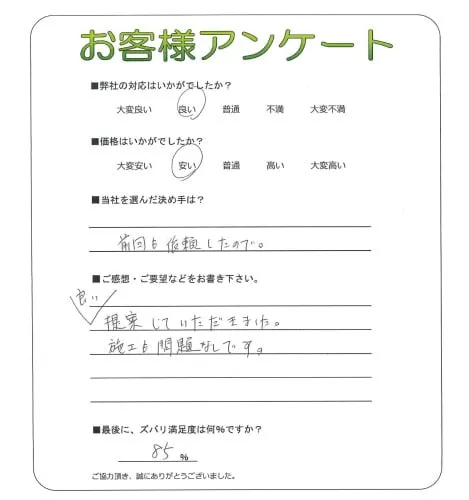 お客様アンケート
■弊社の対応はいかがでしたか？
大変良い 良い 普通 不満 大変不満
■価格はいかがでしたか？
大変安い 安い 普通 高い 大変高い
■当社を選んだ決め手は？
前回も依頼したので。
■ご感想・ご要望などをお書き下さい。
良い
提案していただきました。
施工も問題なしです。
■最後に、ズバリ満足度は何%ですか？
85 %
ご協力頂き、誠にありがとうございました。